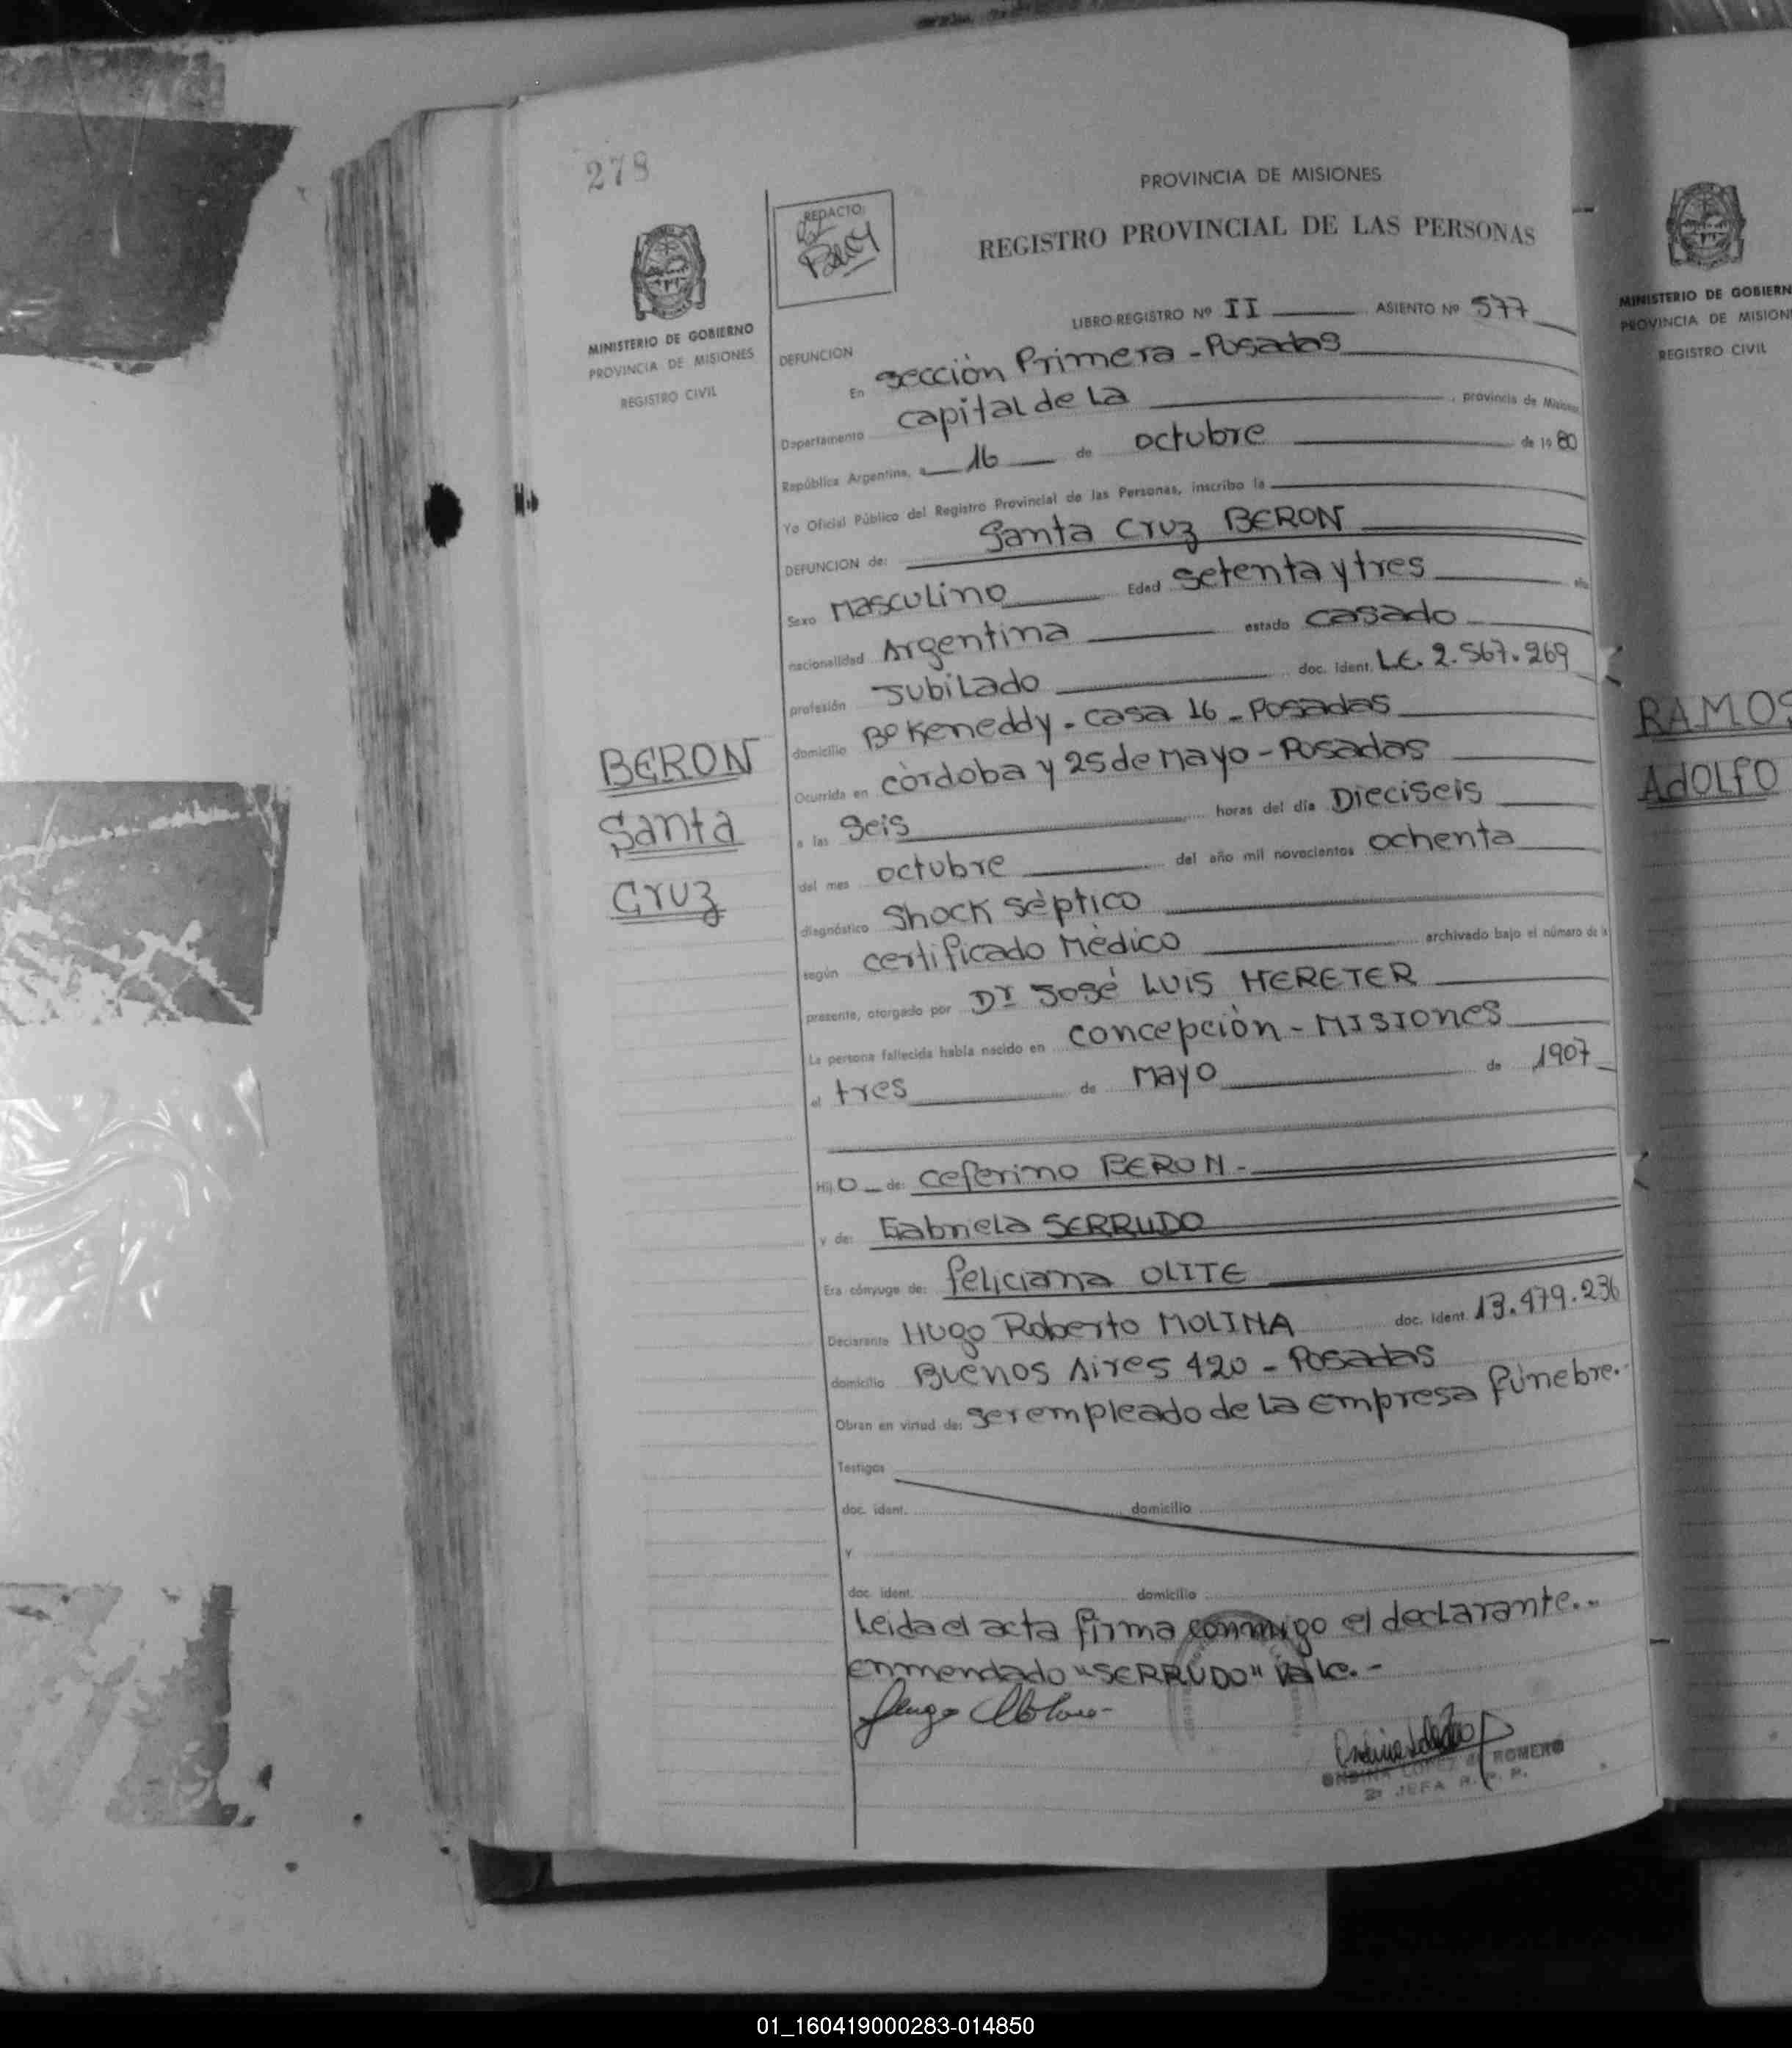 278
PROVINCIA DE MISIONES
REGISTRO PROVINCIAL DE LAS PERSONAS
REDACTO:
MINISTERIO DE GOBIERNO
PROVINCIA DE MISIONES
REGISTRO CIVIL
LIBRO-REGISTRO Nº II ASIENTO Nº 577
DEFUNCION
En Sección Primera - Posadas
Departamento Capital de La , provincia de Misiones
República Argentina, a 16 de octubre de 1980
Yo Oficial Público del Registro Provincial de las Personas, inscribo la
DEFUNCION de: Santa Cruz BERON
Sexo Masculino Edad Setenta y tres años
nacionalidad Argentina estado casado
profesión Jubilado doc. ident. L.E. 2.567.269
domicilio Bº Keneddy - casa 16 - Posadas
Ocurrida en còrdoba y 25 de Mayo - Posadas
a las Seis horas del día Dieciseis
del mes octubre del año mil novecientos ochenta
diagnóstico Shock Sèptico
según certificado Mèdico archivado bajo el número de la
presente, otorgado por Dr José LUIS HERETER
La persona fallecida había nacido en Concepciòn - MISIONES
el tres de Mayo de 1907
Hijo de: Ceferino BERON.-
y de: Gabriela SERRUDO
Era cónyuge de: Feliciana OLITE
Declarante Hugo Roberto MOLINA doc. ident. 13.479.236
domicilio Buenos Aires 420 - Posadas
Obran en virtud de: ser empleado de la Empresa Fùnebre.-
Testigos
doc. ident. domicilio
y
doc. ident. domicilio
Leida el acta firma conmigo el declarante..-
enmendado "SERRUDO" Vale.-
ONDINA LOPEZ de ROMERO
2ª JEFA R. P. P.
BERON
Santa
Cruz
MINISTERIO DE GOBIERN
PROVINCIA DE MISION
REGISTRO CIVIL
RAMOS
AdOLFO
01_160419000283-014850